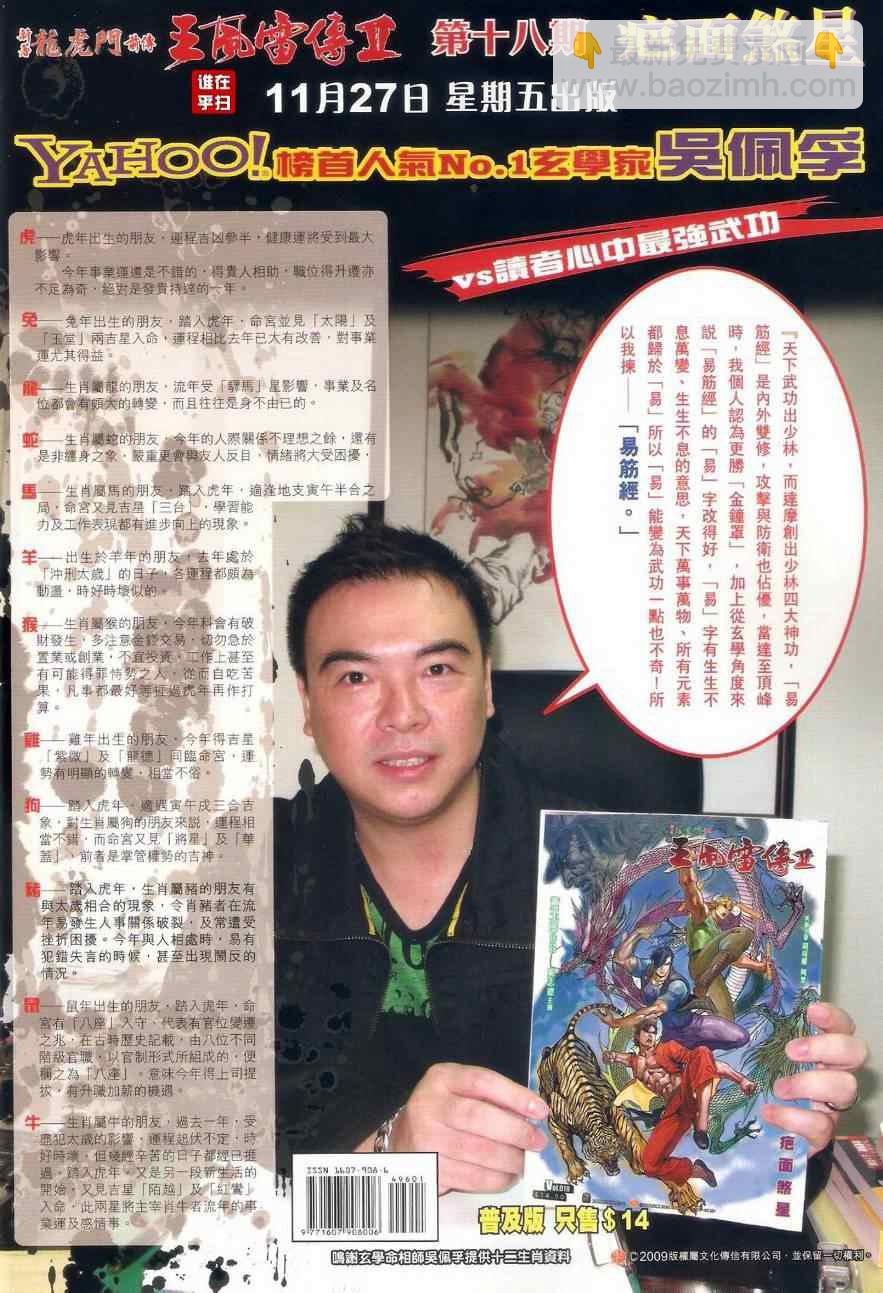 新著龍虎門前傳 王風雷傳Ⅱ 第十八期 疤面煞星
誰在乎扫
www.baozimh.com
11月27日 星期五出版
YAHOO! 榜首人氣No.1玄學家 吳佩孚
vs讀者心中最強武功
虎——虎年出生的朋友，運程吉凶參半，健康運將受到最大
影響。
今年事業運還是不錯的，得貴人相助，職位得升遷亦
不足為奇，絕對是發貴持達的一年。
兔——兔年出生的朋友，踏入虎年，命宮並見「太陽」及
「玉堂」兩吉星入命，運程相比去年已大有改善，對事業
運尤其得益。
龍——生肖屬龍的朋友，流年受「驛馬」星影響，事業及名
位都會有頗大的轉變，而且往往是身不由已的。
蛇——生肖屬蛇的朋友，今年的人際關係不理想之餘，還有
是非纏身之象，嚴重更會與友人反目，情緒將大受困擾，
馬——生肖屬馬的朋友，踏入虎年，適逢地支寅午半合之
局，命宮又見吉星「三台」，學習能
力及工作表現都有進步向上的現象。
羊——出生於羊年的朋友，去年處於
「沖刑太歲」的日子，各運程都頗為
動盪，時好時壞似的。
猴——生肖屬猴的朋友，今年料會有破
財發生，多注意金錢交易，切勿急於
置業或創業，不宜投資，工作上甚至
有可能得罪恃勢之人，從而自吃苦
果，凡事都最好等極過虎年再作打
算。
雞——雞年出生的朋友，今年得吉星
「紫微」及「龍德」同臨命宮，運
勢有明顯的轉變，相當不俗。
狗——踏入虎年，適遇寅午戌三合吉
象，對生肖屬狗的朋友來説，運程相
當不錯，而命宮又見「將星」及「華
蓋」，前者是掌管權勢的吉神。
豬——踏入虎年，生肖屬豬的朋友有
與太歲相合的現象，令肖豬者在流
年易發生人事關係破裂，及常遭受
挫折困擾。今年與人相處時，易有
犯錯失言的時候，甚至出現鬧反的
情況。
——鼠年出生的朋友，踏入虎年，命
宮有「八座」入守，代表有官位變遷
之兆，在古時歷史記載，由八位不同
階級官職，以官制形式所組成的，便
稱之為「八座」。意味今年得上司提
拔，有升職加薪的機遇。
牛——生肖屬牛的朋友，過去一年，受
盡犯太歲的影響，運程起伏不定，時
好時壞，但幾經辛苦的日子都經已捱
過，踏入虎年，又是另一段新生活的
開始，又見吉星「陌越」及「紅鸞」
入命，此兩星將主宰肖牛者流年的事
業運及感情事。
『天下武功出少林，而達摩創出少林四大神功，「易
筋經」是內外雙修，攻擊與防衛也佔優，當達至頂峰
時，我個人認為更勝「金鐘罩」，加上從玄學角度來
説「易筋經」的「易」字改得好，「易」字有生生不
息萬變、生生不息的意思，天下萬事萬物、所有元素
都歸於「易」所以「易」能變為武功一點也不奇！所
以我揀——「易筋經。」
王風雷傳Ⅱ
疤面煞星
ISSN 1607-908-6
49601
9 771607 908006
普及版 只售$14
鳴謝玄學命相師吳佩孚提供十二生肖資料
©2009版權屬文化傳信有限公司，並保留一切權利。